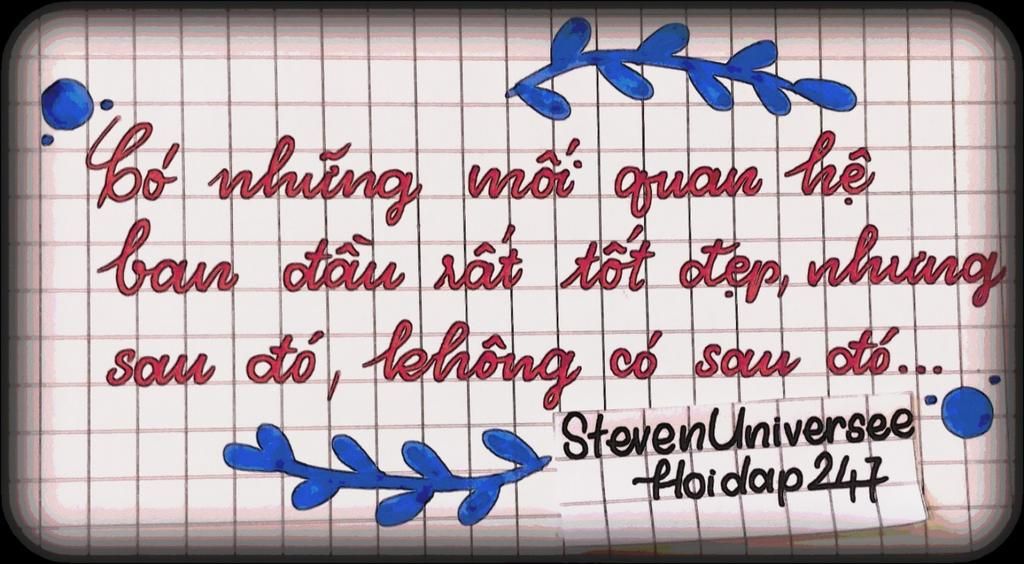 Có những mối quan hệ
ban đầu rất tốt đẹp, nhưng
sau đó, không có sau đó...
StevenUniversee
Hoidap247